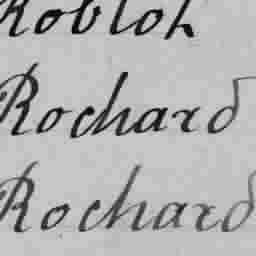 Robloh
Rochard
Rochard